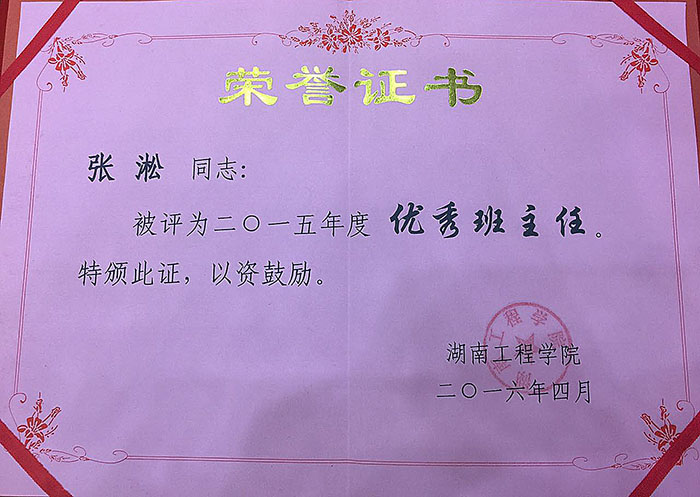 荣誉证书
张淞 同志：
被评为二〇一五年度 优秀班主任。
特颁此证，以资鼓励。
湖南工程学院
湖南工程学院
二〇一六年四月